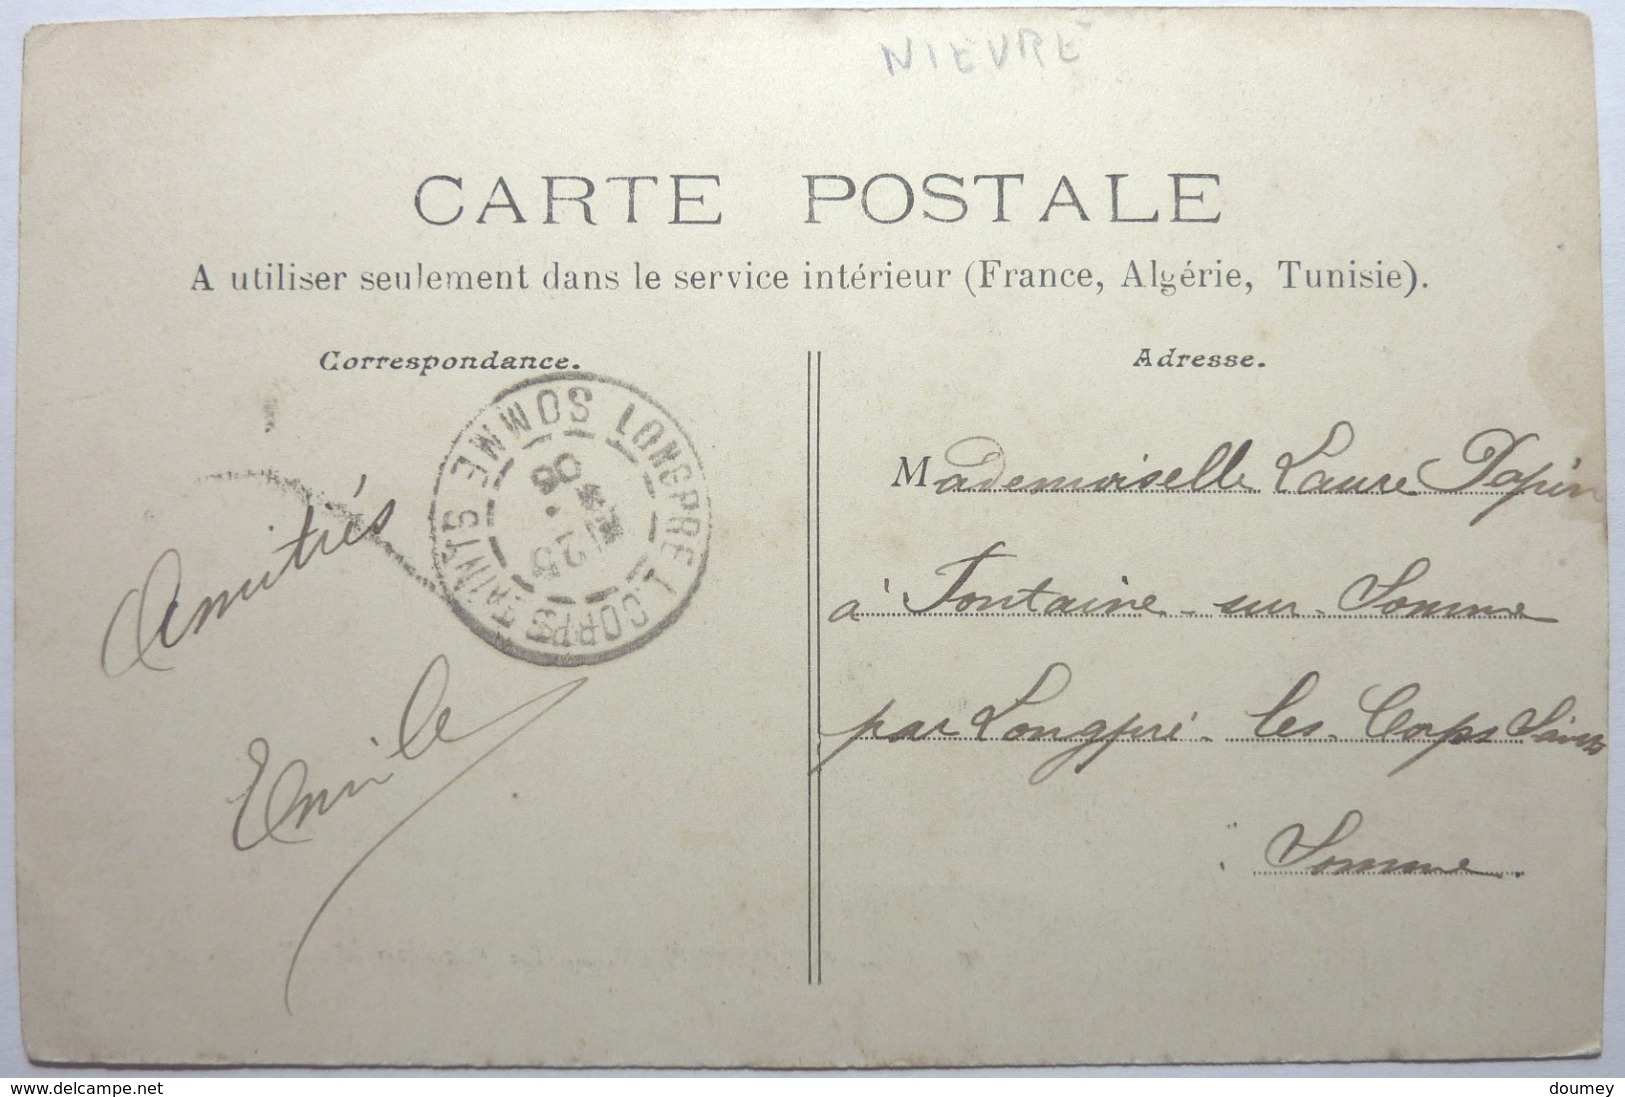 NIEVRE
CARTE POSTALE
A utiliser seulement dans le service intérieur (France, Algérie, Tunisie).
Correspondance.
Adresse.
SOMME LONGPRE L. CORPS SAINTS
25
06
Amitiés
Emile
Mademoiselle Laure Papin
à Fontaine-sur-Somme
par Longpré-les-Corps Saints
Somme.
www.delcampe.net
doumey